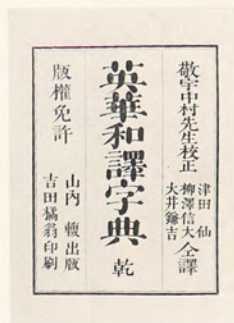 敬宇中村先生校正
津田仙
柳澤信大
大井鎌吉
仝譯
英華和譯字典
乾
版權免許
山内𨏍出版
吉田橘翁印刷